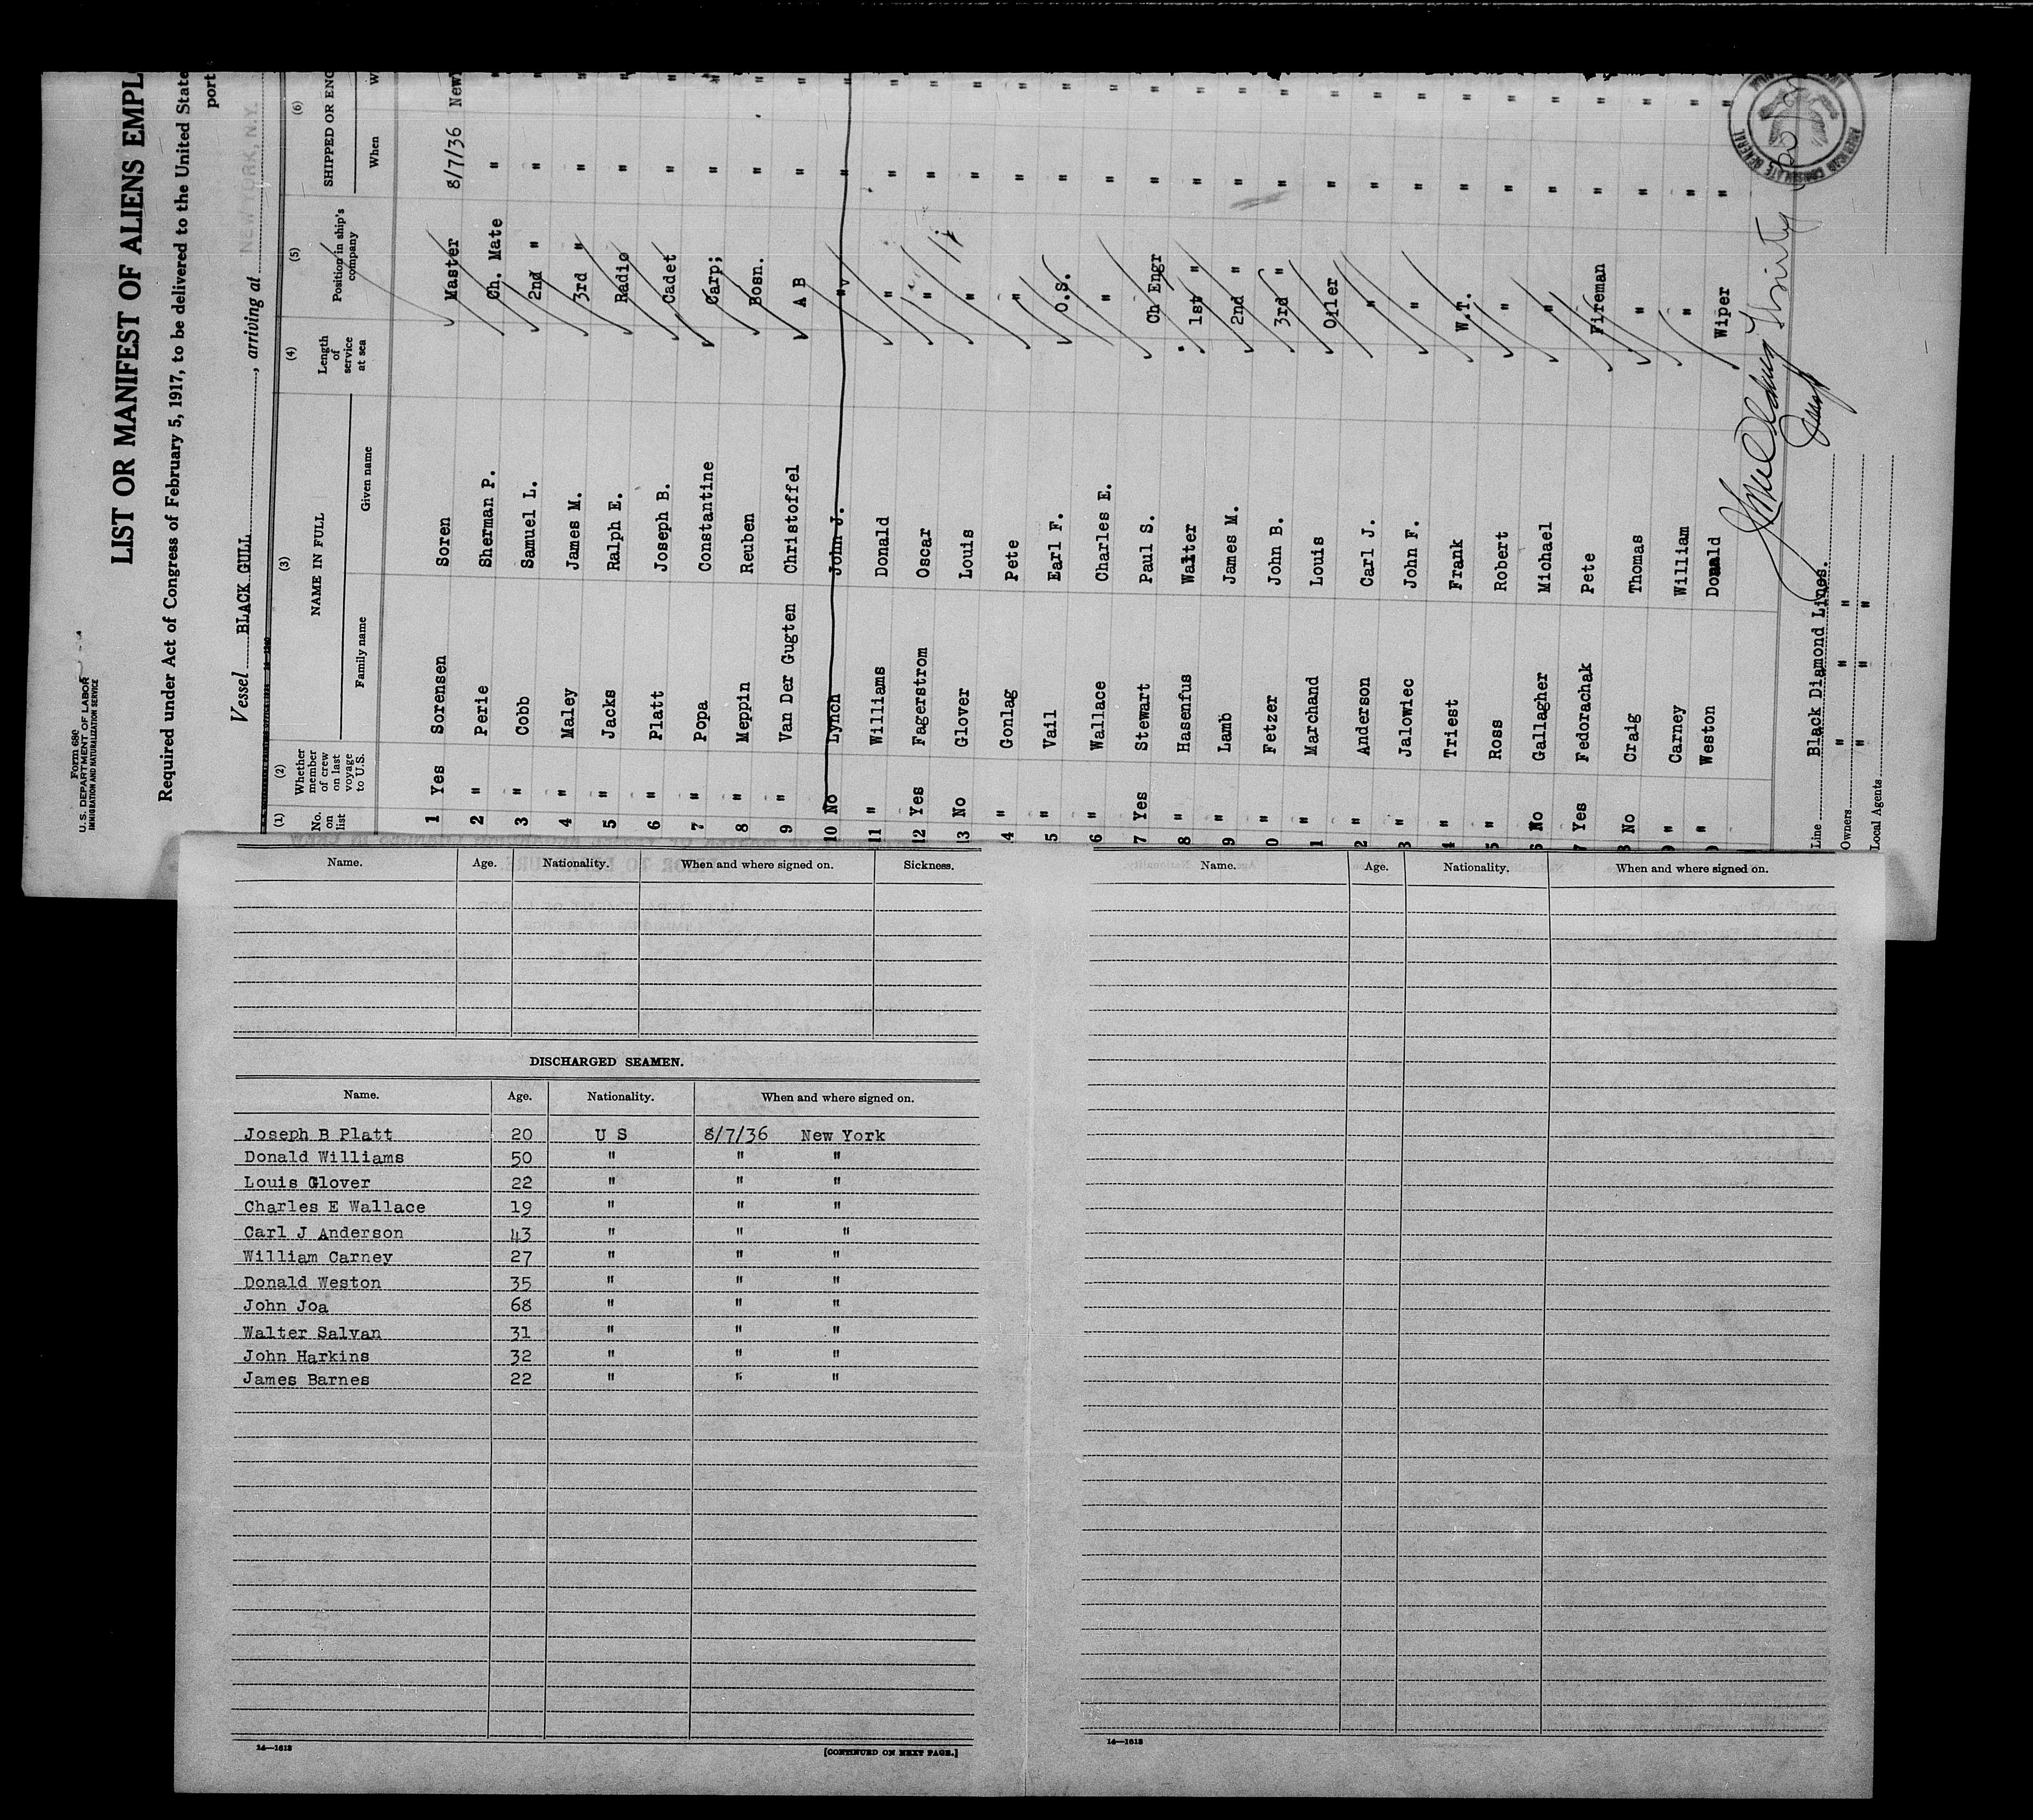 Form 680
U. S. DEPARTMENT OF LABOR
IMMIGRATION AND NATURALIZATION SERVICE
LIST OR MANIFEST OF ALIENS EMPL
Required under Act of Congress of February 5, 1917, to be delivered to the United State
port
Vessel BLACK GULL, arriving at NEW YORK, N.Y.
(1) (2) (3) (4) (5) (6)
No. on list Whether member of crew on last voyage to U.S. NAME IN FULL Length of service at sea Position in ship's company SHIPPED OR ENG
Family name Given name When W
1 Yes Sorensen Soren Master 8/7/36 New
2 " Perie Sherman P. Ch. Mate " "
3 " Cobb Samuel L. 2nd " " "
4 " Maley James M. 3rd " " "
5 " Jacks Ralph E. Radio " "
6 " Platt Joseph B. Cadet " "
7 " Popa Constantine Carp; " "
8 " Meppin Reuben Bosn. " "
9 " Van Der Gugten Christoffel A B " "
10 No Lynch John J. " " "
11 " Williams Donald " " "
12 Yes Fagerstrom Oscar " " "
13 No Glover Louis " " "
4 " Gonlag Pete " " "
5 " Vail Earl F. O.S. " "
6 " Wallace Charles E. " " "
7 Yes Stewart Paul S. Ch Engr " "
8 " Hasenfus Walter 1st " " "
9 " Lamb James M. 2nd " " "
0 " Fetzer John B. 3rd " " "
1 " Marchand Louis Oiler " "
2 " Anderson Carl J. " " "
3 " Jalowiec John F. " " "
4 " Triest Frank W.T. " "
5 " Ross Robert " " "
6 No Gallagher Michael " " "
7 Yes Fedorachak Pete Fireman " "
8 No Craig Thomas " " "
9 " Carney William " " "
" Weston Donald Wiper " "
Thirty
AMERICAN CONSULATE GENERAL
Line Black Diamond Lines.
Owners " " "
Local Agents " " "
Name. Age. Nationality. When and where signed on. Sickness.
DISCHARGED SEAMEN.
Name. Age. Nationality. When and where signed on.
Joseph B Platt 20 U S 8/7/36 New York
Donald Williams 50 " " "
Louis Glover 22 " " "
Charles E Wallace 19 " " "
Carl J Anderson 43 " " "
William Carney 27 " " "
Donald Weston 35 " " "
John Joa 68 " " "
Walter Salvan 31 " " "
John Harkins 32 " " "
James Barnes 22 " " "
14—1613
[CONTINUED ON NEXT PAGE.]
Name. Age. Nationality. When and where signed on.
14—1613